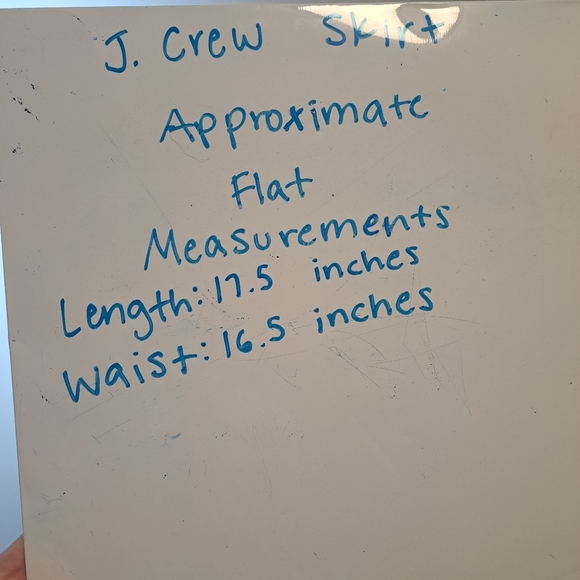 J. Crew Skirt
Approximate
Flat
Measurements
Length: 17.5 inches
Waist: 16.5 inches